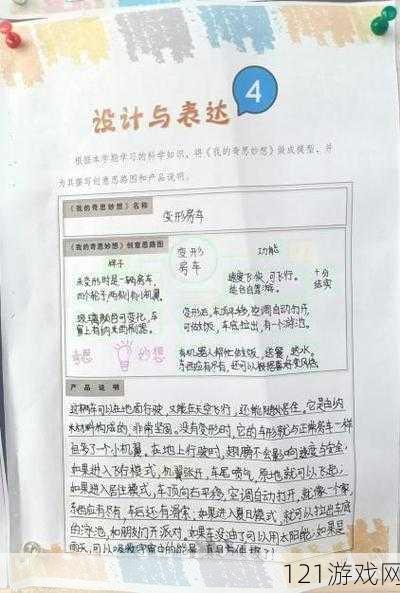 设计与表达
4
根据本学期学习的科学知识，将《我的奇思妙想》做成模型，并
为其撰写创意思路图和产品说明。
《我的奇思妙想》名称
变形房车
《我的奇思妙想》创意思路图
样子
变形
房车
功能
未变形时是一辆房车，
四个轮子两侧有小机翼
玻璃颜色可变化，车
窗上有纳米雨刷器。
速度飞快，可飞行。
能在自己家。
十分
结实
变形后，车顶平移，空调自动打开，
可做饭，车底拉出，有一个泳池。
有机器人帮忙做饭，送餐，热水。
东西应有尽有，还可以根据喜好变风格。
奇思
妙想
产品说明
这辆车可以在地面行驶，又能在天空飞行，还能随处居住。它是由纳
米材料构成的，非常坚固。没有变形时，它的车形就与正常房车一样
但多了一个小机翼。在地上行驶时，翅膀不会影响速度与安全，
如果进入飞行模式，机翼张开，车尾喷气，原地就可以飞起；
如果进入居住模式，车顶向右平移，空调自动打开，就像一个家，
东西应有尽有，车后还有滑索，如果进入夏日模式，就可以拉出车底
的泳池，和朋友们开派对，如果车没油了可以用太阳能；如果是
雨天，可以吸收宇宙中的能量
121游戏网